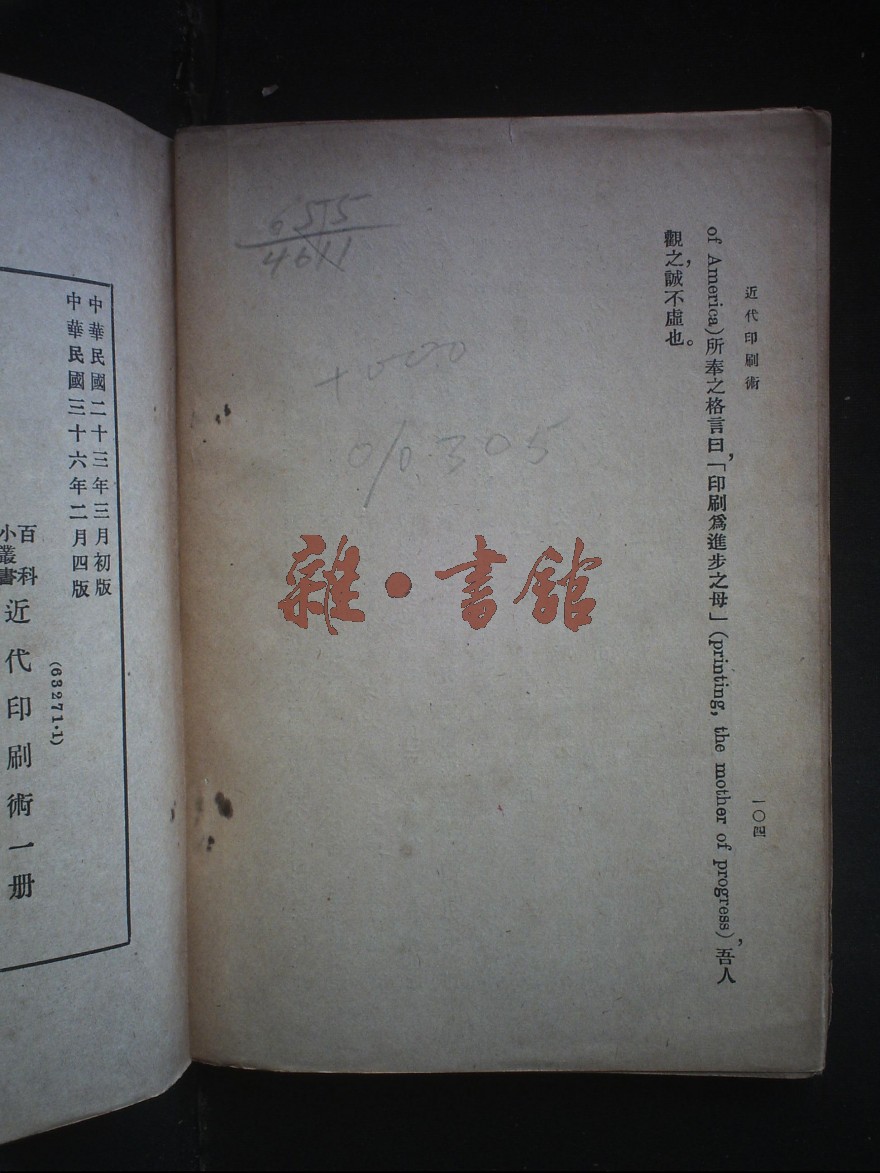 近代印刷術
一〇四
of America)所奉之格言曰,「印刷爲進步之母」(printing, the mother of progress),吾人
觀之,誠不虛也。
6515
4611
+000
0/0.305
雜·書館
中華民國二十三年三月初版
中華民國三十六年二月四版
(63271·1)
百科
小叢書
近代印刷術一册